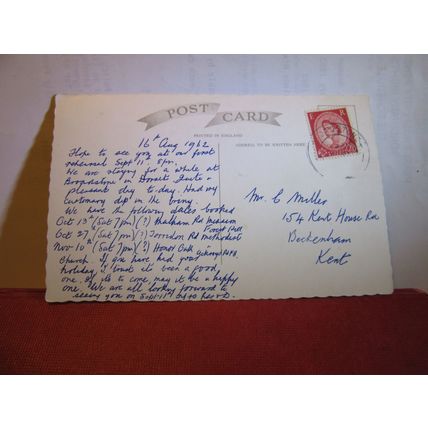 POST CARD
PRINTED IN ENGLAND
ADDRESS TO BE WRITTEN HERE
16th Aug 1962
Hope to see you at our first
rehearsal Sept 11th 8pm.
We are staying for a while at
in Dorset. Quite a
pleasant day to day. Had my
customary dip in the briny.
We have the following dates booked
Oct 13th (Sat) 7pm (?)
Forest Hill
Oct 27 (Sat) 7pm (?) Methodist
Nov 10th (Sat) 7pm (?) Honor Oak
Church. If you have had your
holiday I trust it's been a good
one. If it's to come, may it be a happy
one. We are all looking forward to
seeing you on Sept 11th
Mr. C Miller
154 Kent House Rd
Beckenham
Kent